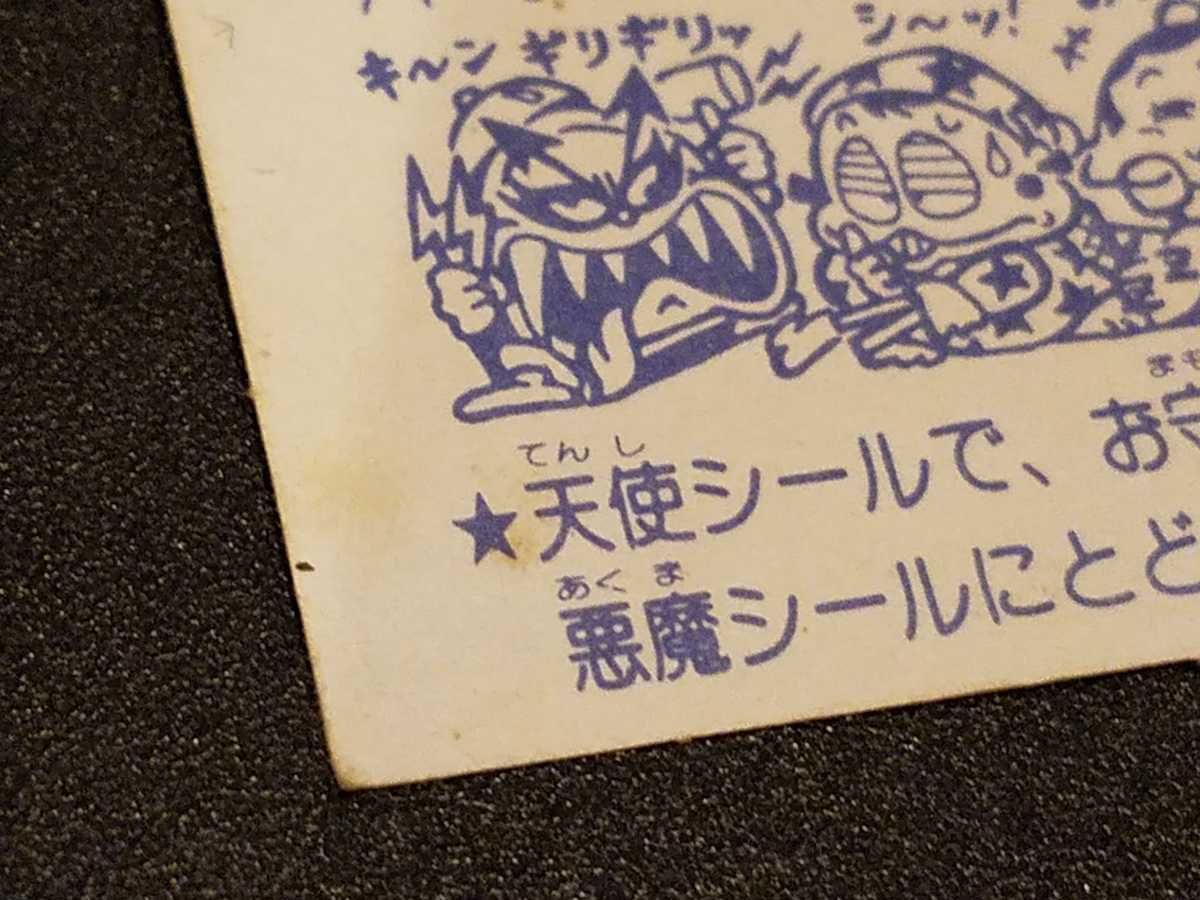 シ〜ッ!
キ〜ン ギリギリッ
てん し
★天使シールで、お守
あく ま
悪魔シールにとど